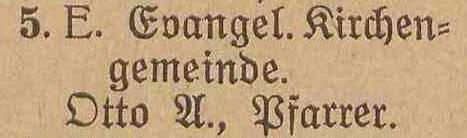 5. E. Evangel. Kirchen=
gemeinde.
Otto A., Pfarrer.